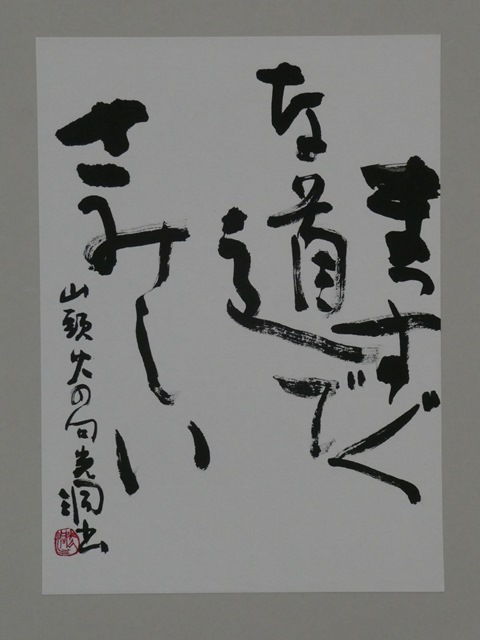 まっすぐ
な道で
さみしい
山頭火の句 書